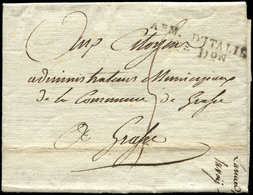 ARM. D'ITALIE
DON
Aux Citoyens
administrateurs Municipaux
de la Commune de Grasse
à Grasse